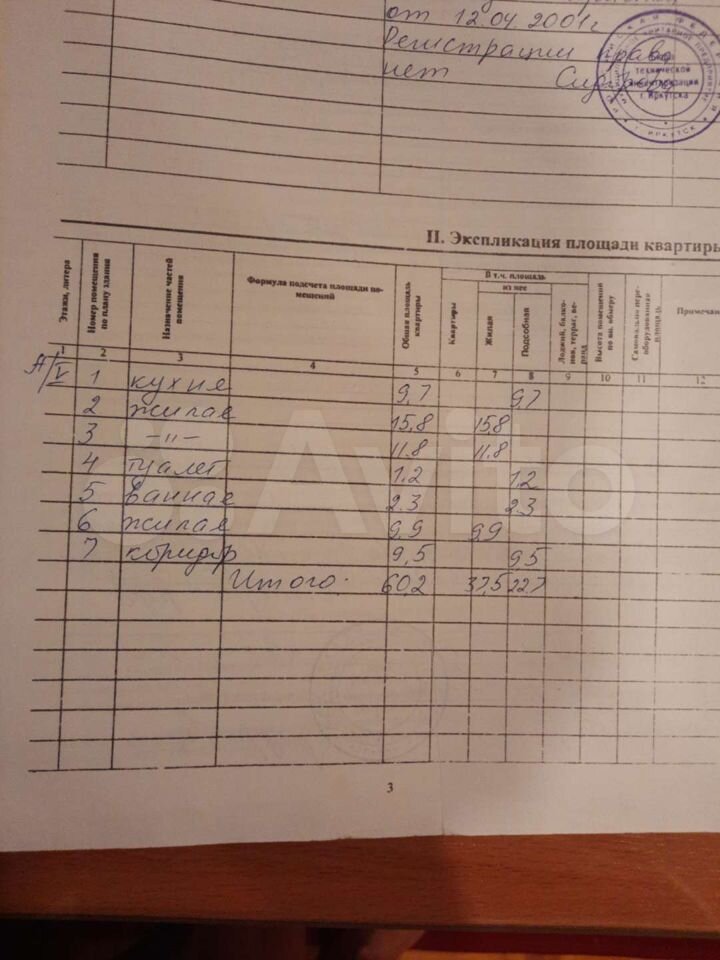 от 12.04.2001г
Регистрации право
нет
технической
инвентаризации
г. Иркутска
г. ИРКУТСК
II. Экспликация площади квартиры
Этажи, литера
Номер помещения по плану здания
Назначение частей помещения
Формула подсчета площади по-
мещений
Общая площадь квартиры
В т.ч. площадь
Квартиры
из нее
Жилая
Подсобная
Лоджий, балко-
нов, террас, ве-
ранд
Высота помещений
по вн. обмеру
Самовольно пере-
оборудованная
площадь
Примечан
1 2 3 4 5 6 7 8 9 10 11 12
А/V 1 кухня 9,7 9,7
2 жилая 15,8 15,8
3 –"– 11.8 11.8
4 туалет 1.2 1.2
5 ванная 2.3 2.3
6 жилая 9,9 9,9
7 коридор 9,5 9,5
Итого 60,2 37,5 22,7
3
Avito